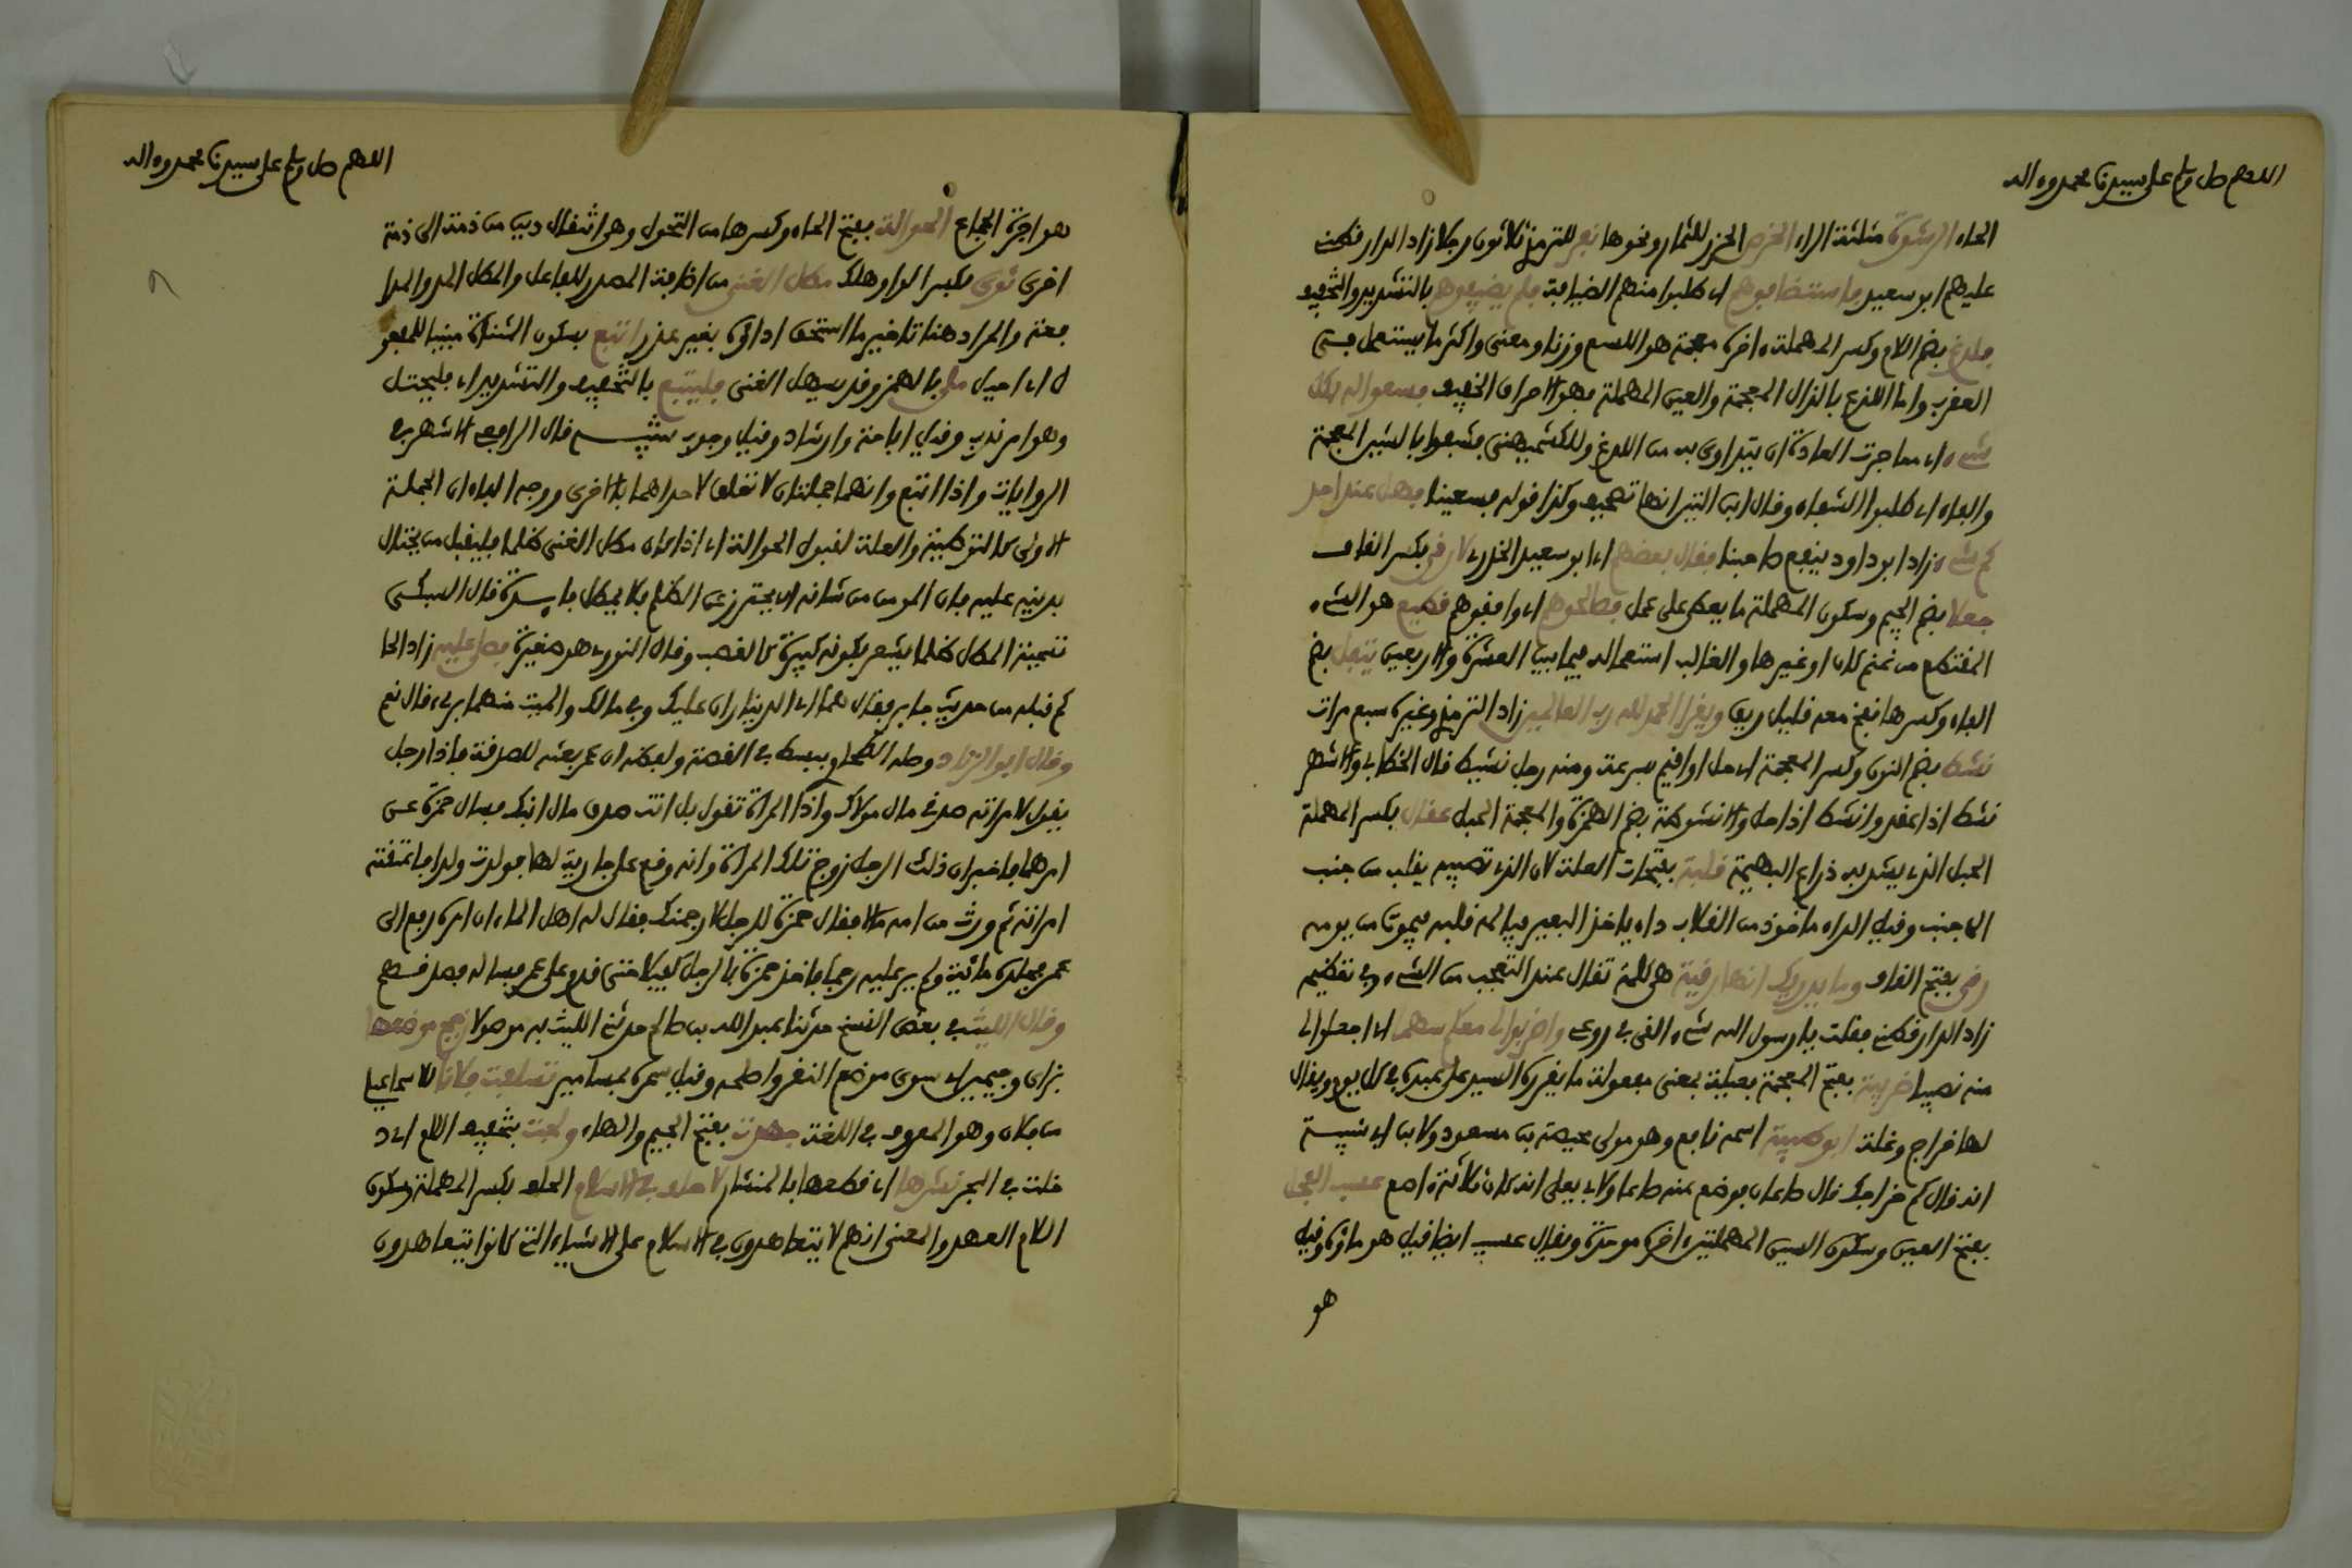 اللهم صل وسلم على سيدنا محمد وءاله
الحاء الرشوة مثلثة الراء الخرص الحزر للثمار ونحوها نفر للترمذي ثلاثون رجلا زاد الدارقطني
عليهم ابو سعيد فاستضافوهم اي طلبوا منهم الضيافة فلم يضيفوهم بالتشديد والتخفيف
فلدغ بضم اللام وكسر المهملة ءاخره معجمة هو اللسع وزنا ومعنى واكثر ما يستعمل في
العقرب واما اللذع بالذال المعجمة والعين المهملة فهو الاحراق الخفيف فسعوا له بكل
شيء اي مما جرت العادة ان يتداوى به من اللدغ وللكشميهني فشفعوا بالشين المعجمة
والفاء اي طلبوا الشفاء وقال ابن التين انها تصحيف وكذا قوله فسعينا فهل عند احد
كم شيء زاد ابو داود ينفع صاحبنا فقال بعضهم اي ابو سعيد الخدري لارقي بكسر القاف
جعلا بضم الجيم وسكون المهملة ما يعطى على عمل فصالحوهم اي وافقوهم قطيع هو الشيء
المقتطع من غنم كان او غيرها والغالب استعماله فيما بين العشرة والاربعين يتفل بضم
الفاء وكسرها نفخ معه قليل ريق ويقرا الحمد لله رب العالمين زاد الترمذي وغيره سبع مرات
نشط بضم النون وكسر المعجمة اي حل او اقيم بسرعة ومنه رجل نشيط قال الخطابي والاشهر
نشط اذا عقد وانشط اذا حل والانشوطة بضم الهمزة والمعجمة الحبل عقال بكسر المهملة
الحبل الذي يشد به ذراع البهيمة قلبة بفتحات العلة لان الذي تصيبه يقلب من جنب
الى جنب وقيل الداء ماخوذ من القلاب داء ياخذ البعير فيالم قلبه فيموت من يومه
رقى بفتح القاف وما يدريك انها رقية هي كلمة تقال عند التعجب من الشيء وفي تعظيمه
زاد الدارقطني فقلت يا رسول الله شيء القي في روعي واضربوا لي معكم سهما اي اجعلوا لي
منه نصيبا ضريبة بفتح المعجمة فعيلة بمعنى مفعولة ما يقرره السيد على عبده في كل يوم ويقال
لها خراج وغلة ابو طيبة اسمه نافع وهو مولى محيصة بن مسعود ولابن ابي شيبة
انه قال كم خراجك قال صاعان فوضع عنه صاعا ولابي يعلى انه كان ثلاثة اصع عسب الفحل
بفتح العين وسكون السين المهملتين ءاخره موحدة ويقال عسيب ايضا قيل هو ماؤه وقيل
هو
اللهم صل وسلم على سيدنا محمد وءاله
هو اجرة الجماع الحوالة بفتح الحاء وكسرها من التحول وهو انتقال دين من ذمة الى ذمة
اخرى توى بكسر الواو هلك مطل الغني من اضافة المصدر للفاعل والمطل المد والمدا
فعة والمراد هنا تاخير ما استحق اداؤه بغير عذر اتبع بسكون المثناة مبنيا للمفعو
ل اي احيل ملي بالهمز وقد يسهل الغني فليتبع بالتخفيف والتشديد اي فليحتل
وهو امر ندب وقيل اباحة وارشاد وقيل وجوب تنبيه قال الرافعي الاشهر في
الروايات واذا اتبع وانهما جملتان لا تعلق لاحداهما بالاخرى ووجه الفاء ان الجملة
الاولى كالتوطئة والعلة لقبول الحوالة اي اذا كان مطل الغني ظلما فليقبل من يحتال
بدينه عليه فان المومن من شانه ان يحترز عن الظلم فلا يمطل قال السبكي
تسمية المطل ظلما يشعر بكونه كبيرة كالغصب وقال النووي هو صغيرة فصل عليه زاد الحا
كم قبله من حديث جابر فقال هما اي الديناران عليك وفي مالك والميت منهما بريء قال نعم
وقال ابو الزناد وصله الطحاوي ببسط في القصة ولفظه ان عمر بعثه للصدقة فاذا رجل
يقول لامراته صدقي مال مولاك واذا المراة تقول بل انت صدق مال ابنك فسال حمزة عن
امرهما فاخبر ان ذلك الرجل زوج تلك المراة وانه وقع على جارية لها فولدت ولدا فاعتقته
امراته ثم ورث من امه مالا فقال حمزة للرجل لارجمنك فقال له اهل الماء ان امره رفع الى
عمر فجلده مائة ولم ير عليه رجما فاخذ حمزة بالرجل كفيلا حتى قدم على عمر فساله فصدقهم
وقال الليث في بعض النسخ حدثنا عبد الله بن صالح حدثني الليث به موصولا زجج موضعها
بزاي وجيمين اي سوى موضع النقر واصلحه وقيل سمره بمسامير تسلفت فلانا للاسماعيلي
من فلان وهو المعروف في اللغة جهدت بفتح الجيم والهاء ولجت بتخفيف اللام اي د
خلت في البحر نشرها اي قطعها بالمنشار لا حلف في الاسلام الحلف بكسر المهملة وسكون
اللام العهد والمعنى انهم لا يتعاهدون في الاسلام على الاشياء التي كانوا يتعاهدون